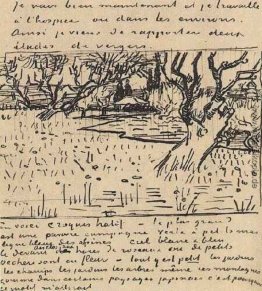 Je vais bien maintenant et je travaille
à l'hospice ou dans les environs.
Ainsi je viens de rapporter deux
études de vergers.
En voici croquis hatif — le plus grand
est une pauvre campagne verte à petits mas
ligne bleue des Alpines ciel blanc et bleu
Le devant
haies de roseaux où de petits
pêchers sont en fleur — tout y est petit les jardins
les champs les jardins les arbres même ces montagnes
comme dans certains paysages japonais c'est pourquoi
ce motif m'attirait